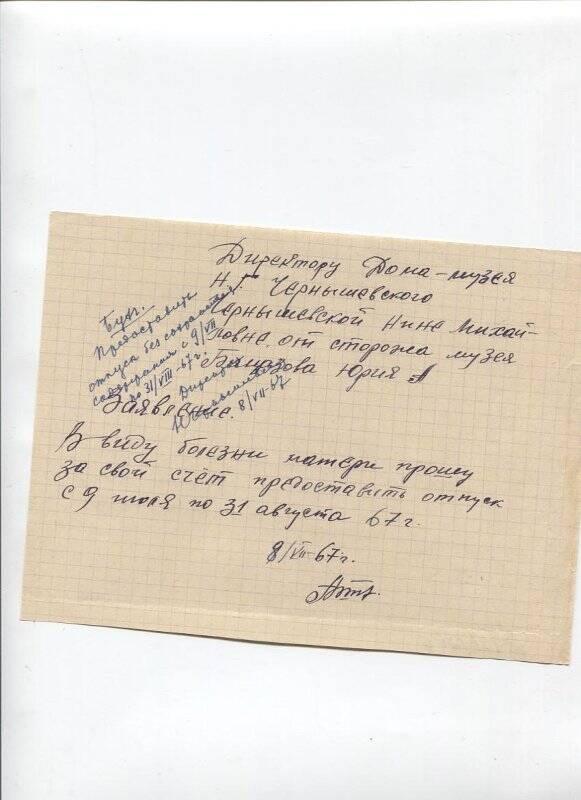 Директору Дома-музея
Н.Г. Чернышевского
Чернышевской Нине Михай-
ловне, от сторожа музея
Юрия А
Заявление.
В виду болезни матери прошу
за свой счёт предоставить отпуск
с 9 июля по 31 августа 67 г.
8/VII-67 г.
Бухг.
Предоставить
отпуск без сохранения
содержания с 9/VII
по 31/VIII-67 г.
Директор
8/VII-67